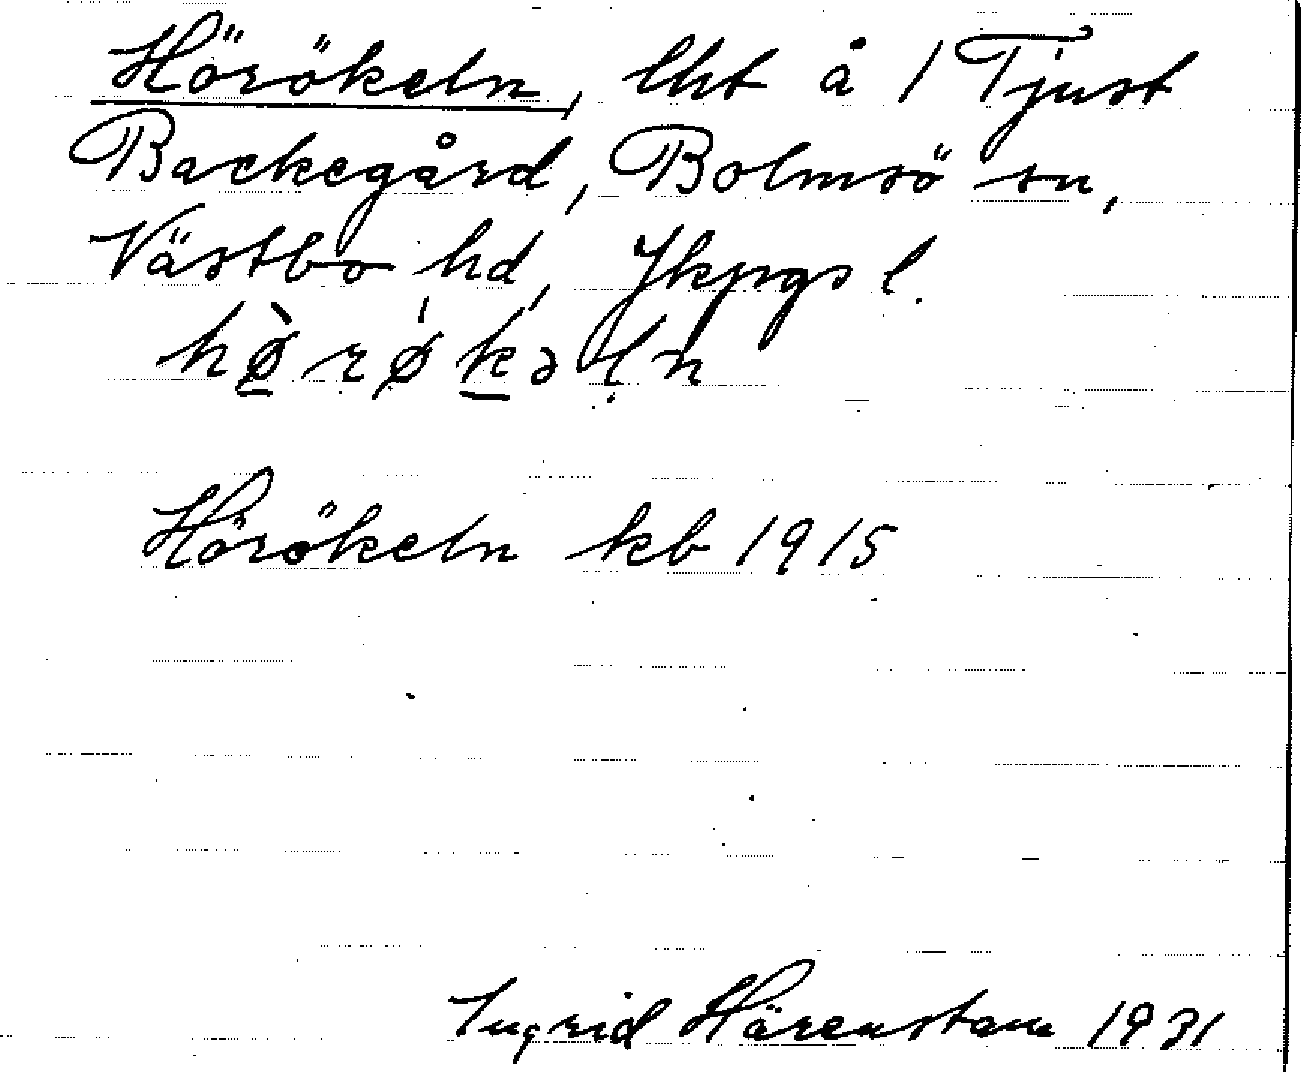 Hörökeln, lht å 1 Tjust
Backegård, Bolmsö sn,
Västbo hd, Jkpgs l.
hø̀rǿkəln
Hörökeln kb 1915
Ingrid Härenstam 1931